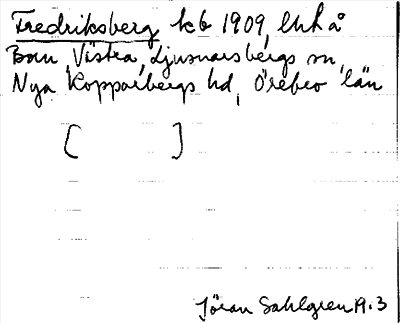 Fredriksberg kb 1909, Enh å
Born, Västra, Ljusnarsbergs sn,
Nya Kopparbergs hd, Örebro län
[ ]
Jöran Sahlgren 19.3